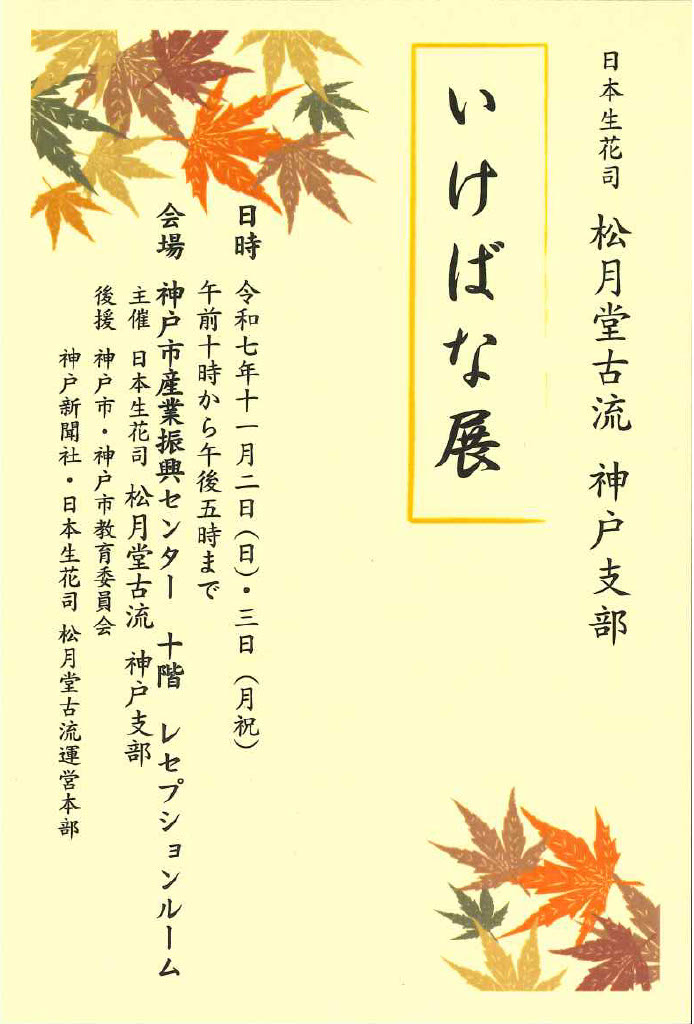 日本生花司 松月堂古流 神戸支部
いけばな展
日時 令和七年十一月二日(日)・三日(月祝)
午前十時から午後五時まで
会場 神戸市産業振興センター 十階 レセプションルーム
主催 日本生花司 松月堂古流 神戸支部
後援 神戸市・神戸市教育委員会
神戸新聞社・日本生花司 松月堂古流運営本部